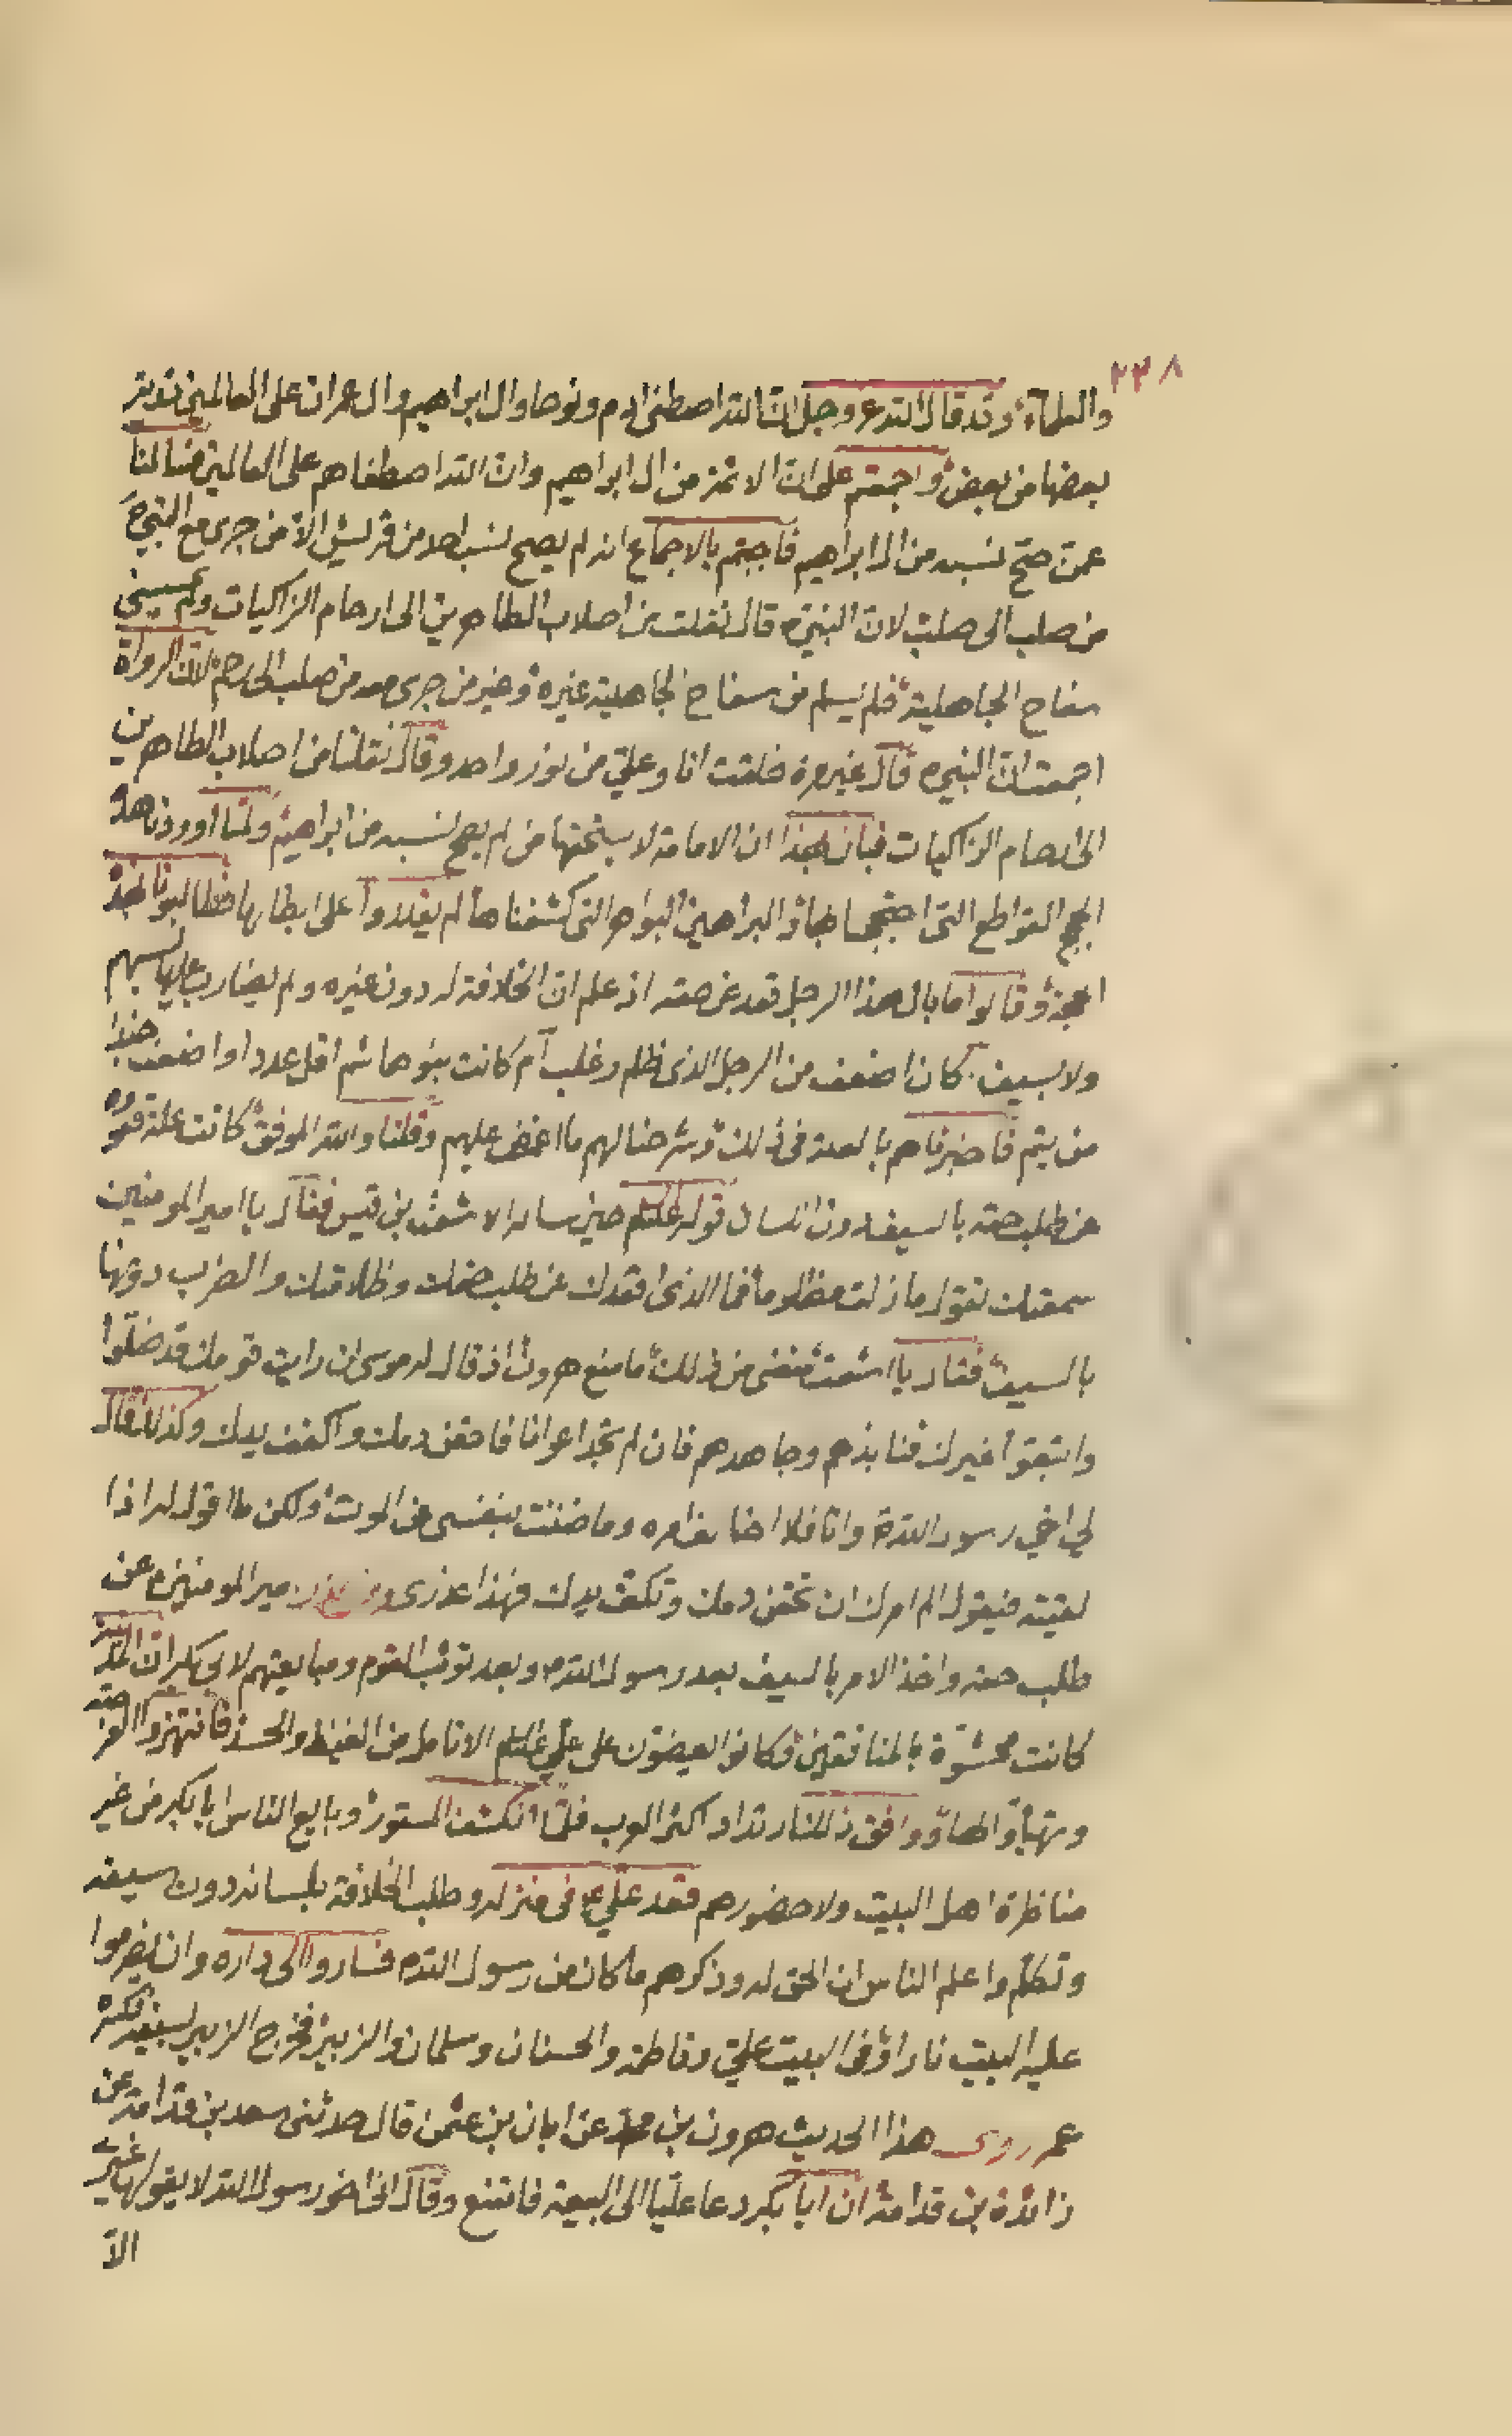 ٢٣٨
والعلماء وقد قال الله عز وجل ان الله اصطفى ادم ونوحا وال ابراهيم وال عمران على العالمين ذرية
بعضها من بعض واجمعتم على ان الائمة من ال ابراهيم وان الله اصطفاهم على العالمين فسالنا
عمن صح نسبه من ال ابراهيم فاجبتم بالاجماع انه لم يصح نسب احد من قريش الا من جرى مع النبي ص
من صلب الى صلب لان النبي ص قال نقلت من اصلاب الطاهرين الى ارحام الزاكيات ولم يمسسني
سفاح الجاهلية فلم يسلم من سفاح الجاهلية غيره وغير من جرى معه من صلب الى رحم لان الرواة
اجمعت ان النبي ص قال غير مرة خلقت انا وعلي من نور واحد وقال نقلنا من اصلاب الطاهرين
الى ارحام الزاكيات فبان بهذا ان الامامة لا يستحقها من لم يصح نسبه من ابراهيم ولما اوردنا هذه
الحجج القواطع التي احتججنا بها والبراهين البواهر التي كشفناها لم يقدروا على ابطالها فطالبونا بهذه
الحجة وقالوا ما بال هذا الرجل قعد عن حقه اذ علم ان الخلافة له دون غيره ولم يضارب عليها بسهم
ولا بسيف كان اضعف من الرجل الذي ظلم وغلب ام كانت بنو هاشم اقل عددا واضعف
من تيم فاخبرناهم بالعلة في ذلك وشرحنا لهم ما اغمض عليهم وقلنا والله الموفق كانت علة قعوده
عن طلب حقه بالسيف دون اللسان قوله عليلم حين ساله الاشعث بن قيس فقال يا امير المومنين
سمعتك تقول ما زلت مظلوما فما الذي اقعدك عن طلب حقك وظلامتك والضرب دونها
بالسيف فقال يا اشعث منعني من ذلك ما منع هرون اذ قال له موسى ان رايت قومك قد ضلوا
واتبعوا غيرك فنابذهم وجاهدهم فان لم تجد اعوانا فاحقن دمك واكفف يدك وكذلك قال
لي اخي رسول الله ص وانا فلا اخالف امره وما ضننت بنفسي عن الموت ولكن ما اقول له اذا
لقيته فيقول الم امرك ان تحقن دمك وتكف يدك فهذا عذري امير المومنين ع عن
طلب حقه واخذ الامر بالسيف بعد رسول الله ص وبعد توثب القوم ومبايعتهم لابي بكر ان المدينة
كانت محشوة بالمنافقين وكانوا يعضون على علي عليلم الانامل من الغيظ والحسد فانتهزوا الفرصة
وتهيأوا لها ووافق ذلك ارتداد اكثر العرب فلما انكشف المستور وبايع الناس ابا بكر من غير
مناظرة اهل البيت ولا حضورهم قعد علي ع في منزله وطلب الخلافة بلسانه دون سيفه
وتكلم واعلم الناس ان الحق له وذكرهم ما كان من رسول الله ص فساروا الى داره وان يضرموا
عليه البيت نارا وفي البيت علي وفاطمة والحسنان وسلمان والزبير فخرج الزبير بسيفه فكسره
عمر روى هذا الحديث هرون بن محمد عن ابان بن عثمن قال حدثني سعد بن قدامة عن
زائدة بن قدامة ان ابا بكر دعا عليا الى البيعة فامتنع وقال اني اخو رسول الله لا يقولها غيري
الا